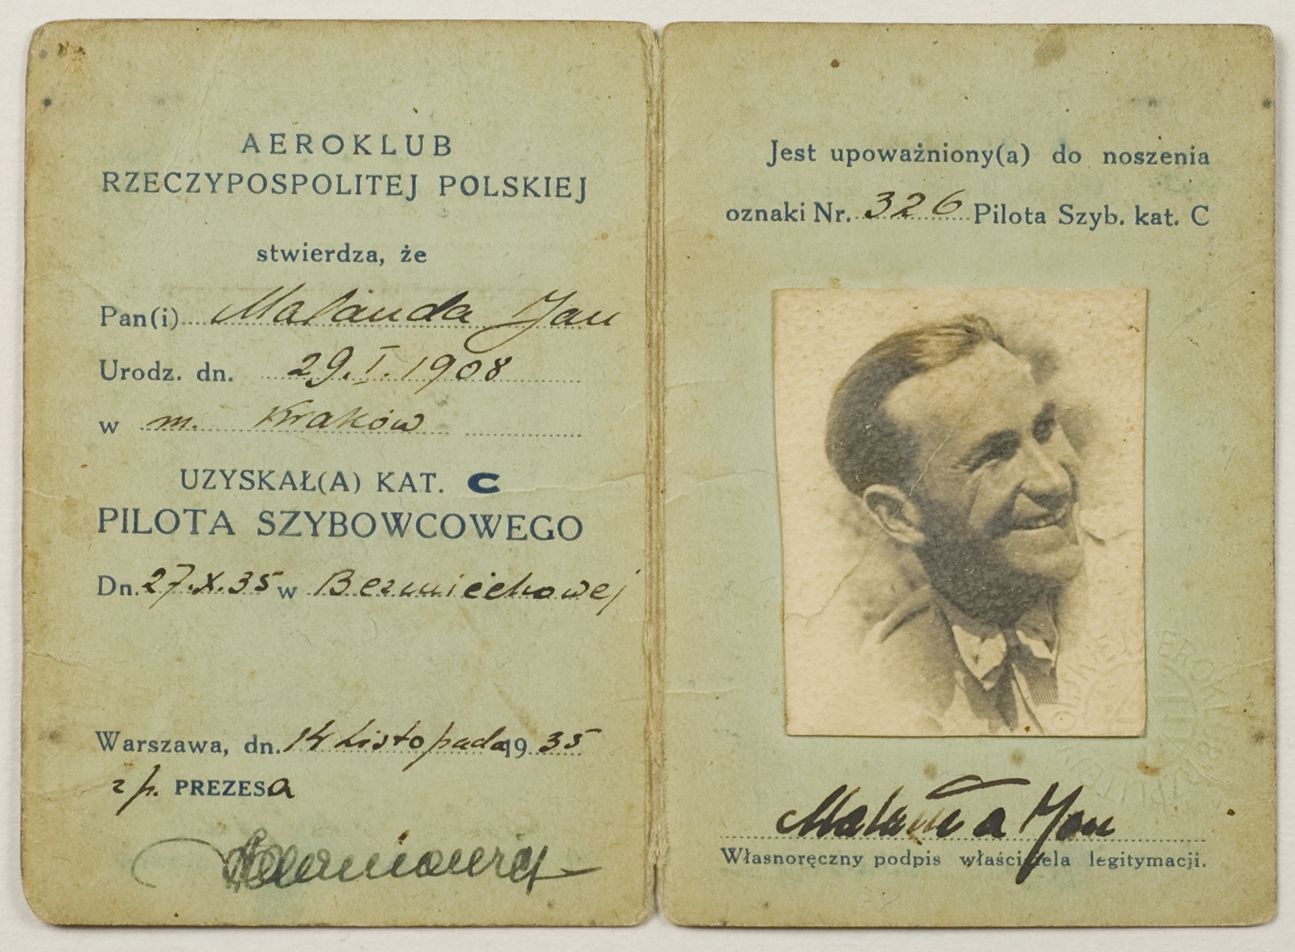 AEROKLUB
RZECZYPOSPOLITEJ POLSKIEJ
stwierdza, że
Pan(i) Malanda Jan
Urodz. dn. 29.I.1908
w m. Kraków
UZYSKAŁ(A) KAT. C
PILOTA SZYBOWCOWEGO
Dn. 27.X.35 w Bezmiechowej
Warszawa, dn. 14 Listopada 1935
z p. PREZESA
Jest upoważniony(a) do noszenia
oznaki Nr. 326 Pilota Szyb. kat. C
Malanda Jan
Własnoręczny podpis właściciela legitymacji.